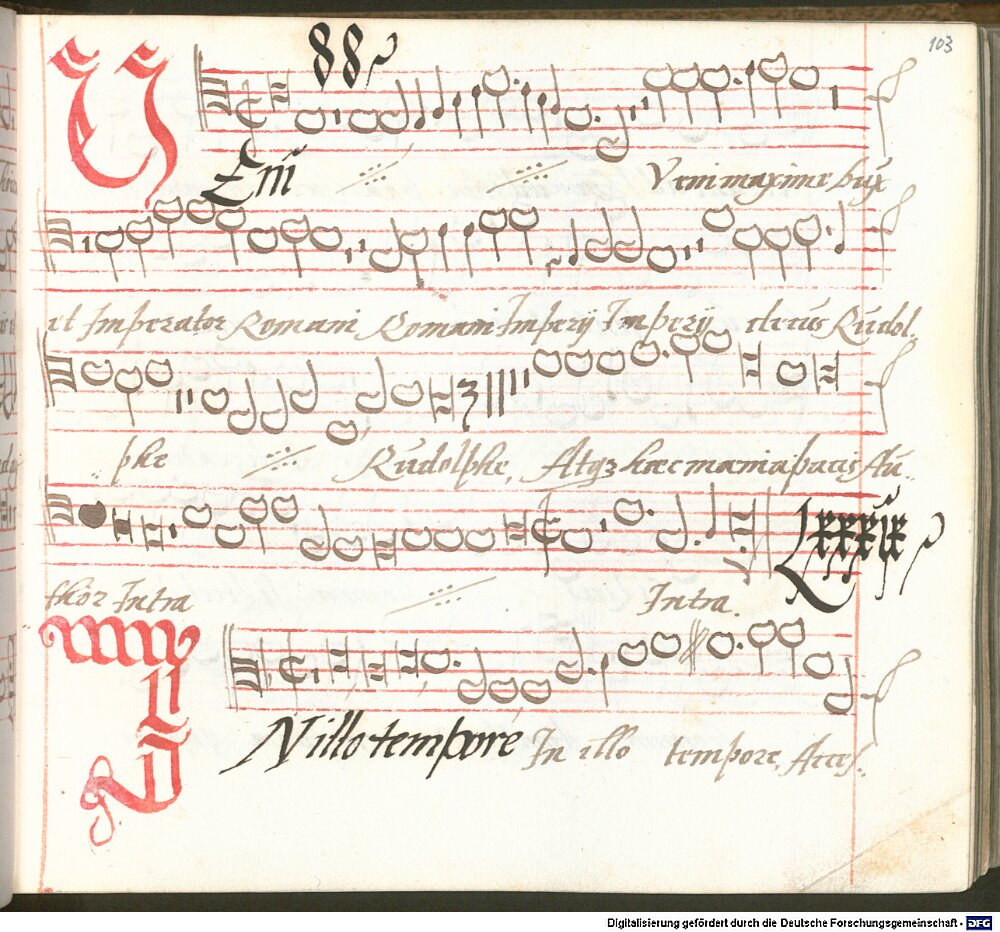 103
88
VEni Veni maxime dux
et Imperator Romani Romani Impery Impery electus Rudol-
phe Rudolphe, Atqz haec maenia pacis Au-
thor Intra Intra
Lxxxix
IN illo tempore In illo tempore, Acces-
Digitalisierung gefördert durch die Deutsche Forschungsgemeinschaft - DFG